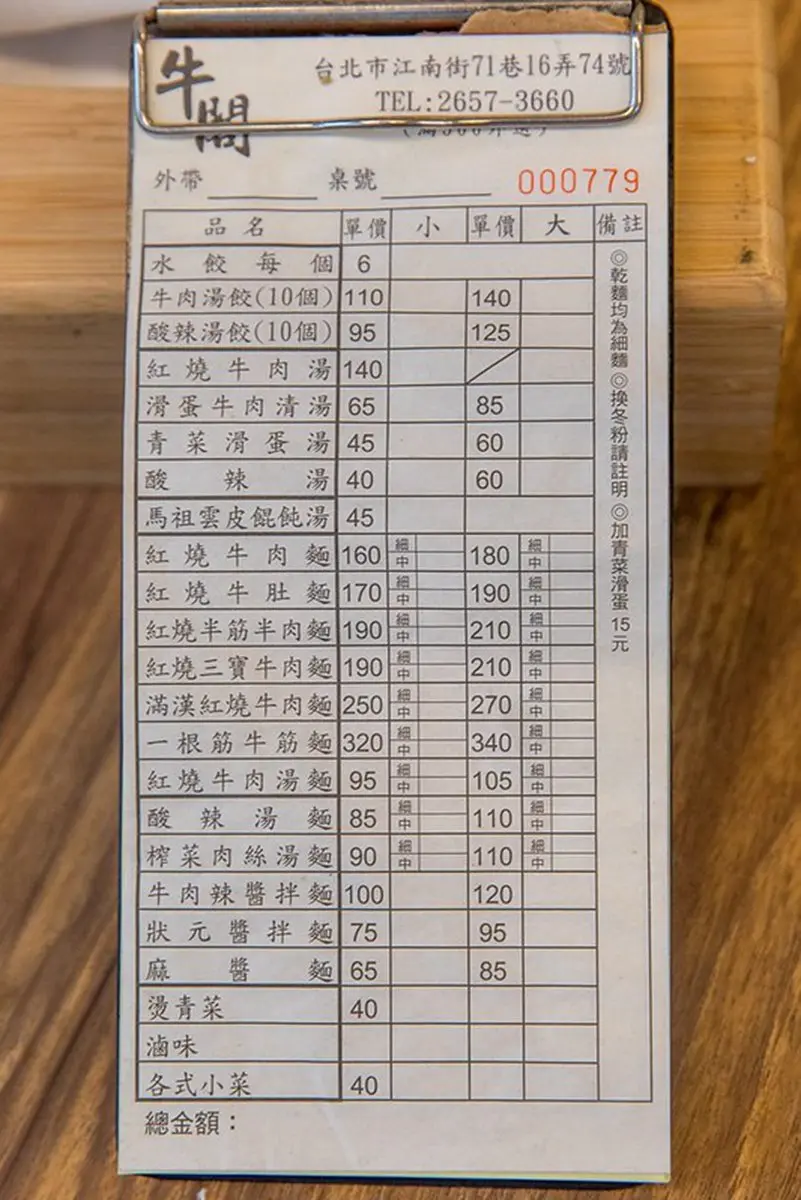 牛閣
台北市江南街71巷16弄74號
TEL:2657-3660
外帶 桌號 000779
品名 單價 小 單價 大 備註
水餃每個 6
牛肉湯餃(10個) 110 140
酸辣湯餃(10個) 95 125
紅燒牛肉湯 140
滑蛋牛肉清湯 65 85
青菜滑蛋湯 45 60
酸辣湯 40 60
馬祖雲皮餛飩湯 45
紅燒牛肉麵 160 細 中 180 細 中
紅燒牛肚麵 170 細 中 190 細 中
紅燒半筋半肉麵 190 細 中 210 細 中
紅燒三寶牛肉麵 190 細 中 210 細 中
滿漢紅燒牛肉麵 250 細 中 270 細 中
一根筋牛筋麵 320 細 中 340 細 中
紅燒牛肉湯麵 95 細 中 105 細 中
酸辣湯麵 85 細 中 110 細 中
榨菜肉絲湯麵 90 細 中 110 細 中
牛肉辣醬拌麵 100 120
狀元醬拌麵 75 95
麻醬麵 65 85
燙青菜 40
滷味
各式小菜 40
總金額：
◎乾麵均為細麵 ◎換冬粉請註明 ◎加青菜滑蛋15元